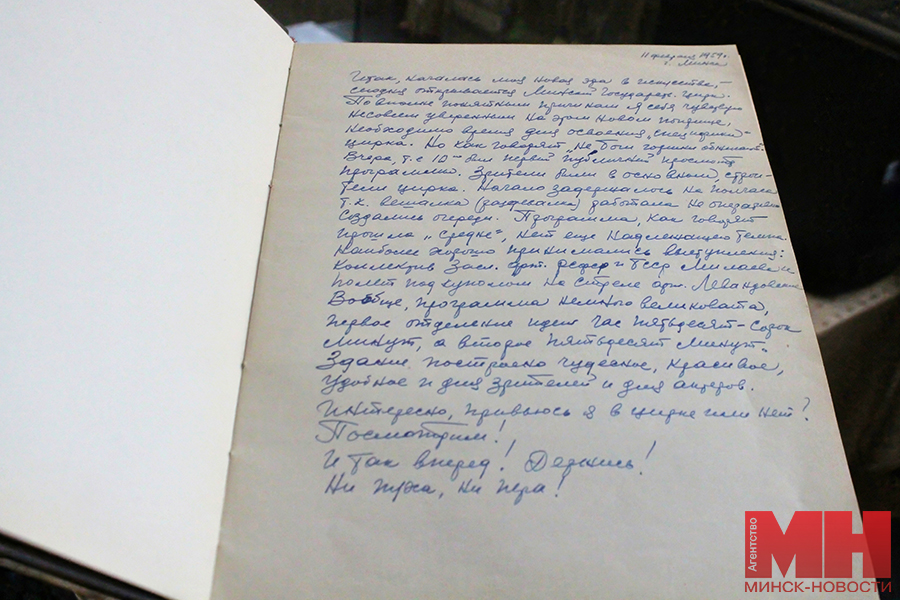 11 февраля 1959 г.
г. Минск
Итак, началась моя новая эра в искусстве, –
сегодня открывается Минский Государств. цирк.
По вполне понятным причинам я себя чувствую
несовсем уверенным на этом новом поприще,
необходимо время для освоения „специфики"
цирка. Но как говорят „Не боги горшки обжигают".
Вчера, т.е 10-го был первый публичный просмотр
программы. Зрители были в основном, строи-
тели цирка. Начало задержалось на полчаса
т.к. вешалка (раздевалка) работала не оперативно
создались очереди. Программа, как говорят
прошла „средне", нет еще надлежащего темпа.
Наиболее хорошо принимались выступления:
Коллектив Засл. арт. РСФСР и ГССР Милаева и
полет под куполом на стреле арт. Левандовских
Вообще, программа немного великовата,
первое отделение идет час пятьдесят-сорок
минут, а второе пятьдесят минут.
Здание построено чудесное, красивое,
удобное и для зрителей и для актеров.
Интересно, привьюсь я в цирке или нет?
Посмотрим!
И так вперед! Держись!
Ни пуха, ни пера!
Агентство
МН
МИНСК-НОВОСТИ